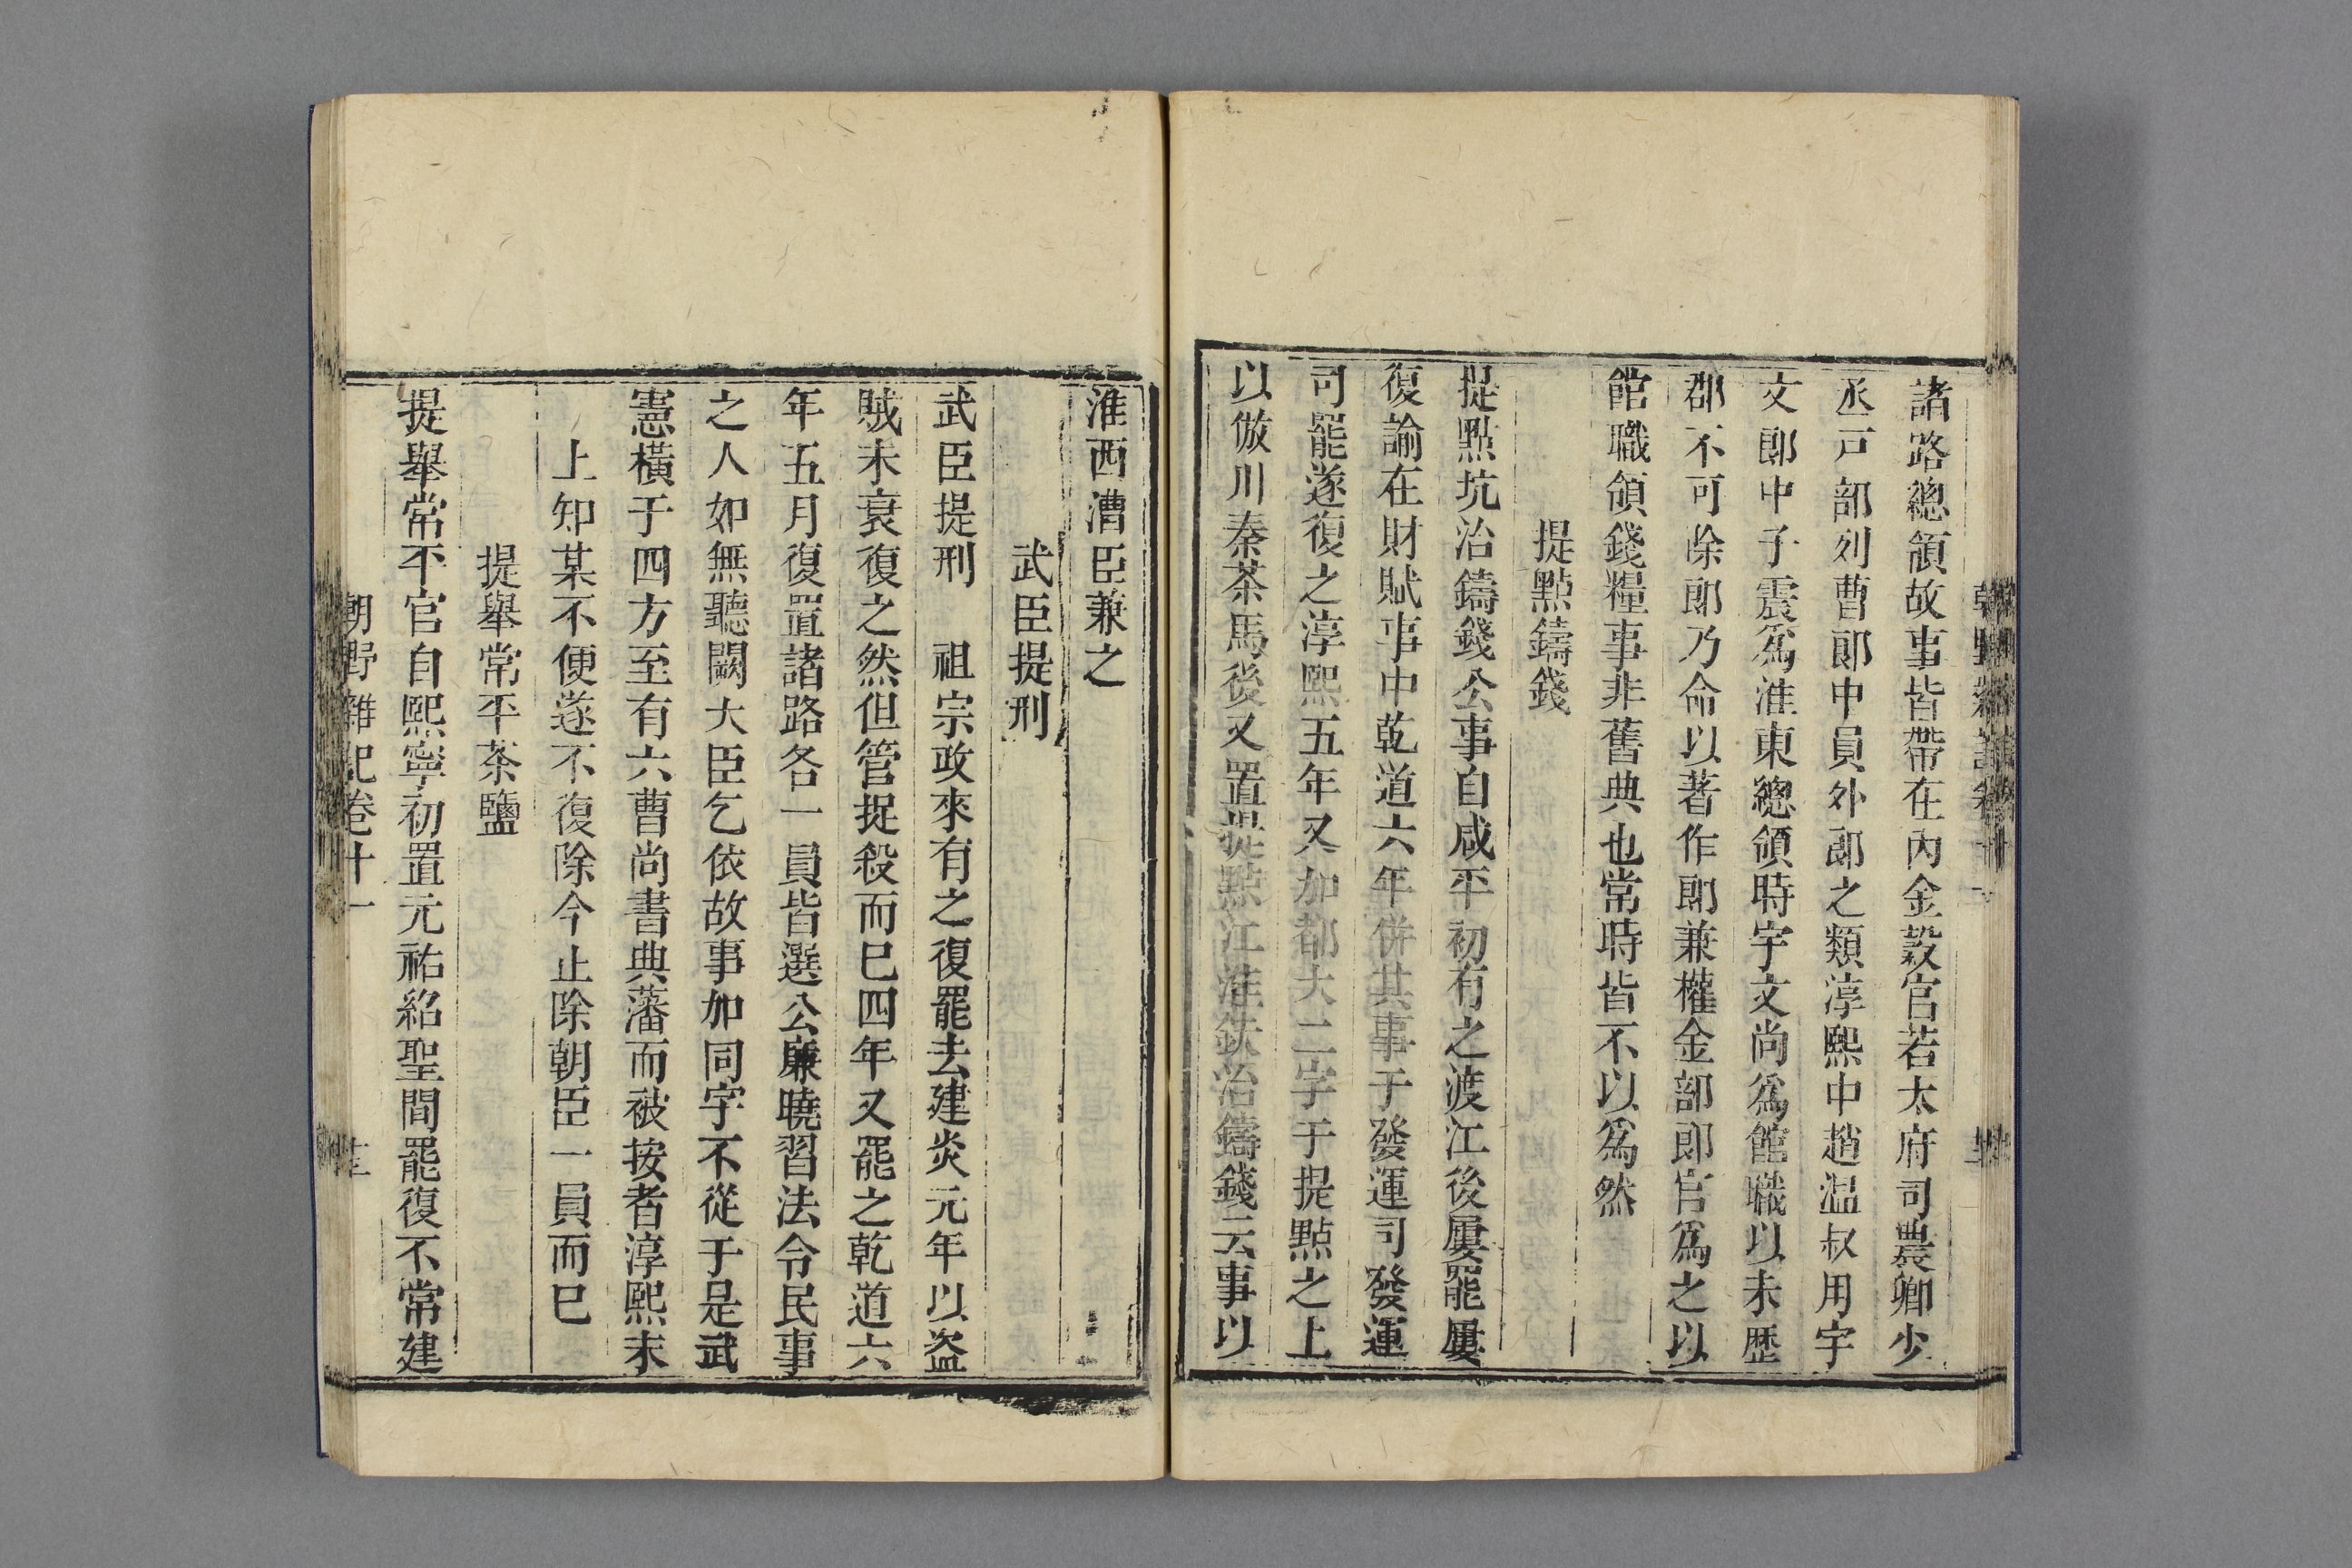 諸路總領故事皆帶在內金穀官若太府司農卿少
丞戸部列曹郞中員外郞之類淳熙中趙溫叔用宇
文郞中子震爲淮東總領時宇文尚爲館職以未歷
郡不可除郞乃命以著作郞兼權金部郞官爲之以
館職領錢糧事非舊典也當時皆不以爲然
提點鑄錢
提點坑冶鑄錢公事自咸平初有之渡江後屢罷屢
復諭在財賦事中乾道六年併其事于發運司發運
司罷遂復之淳熙五年又加都大二字于提點之上
以倣川秦茶馬後又置提點江淮鉄冶鑄錢云事以
淮西漕臣兼之
武臣提刑
武臣提刑　祖宗政來有之復罷去建炎元年以盜
賊未衰復之然但管捉殺而巳四年又罷之乾道六
年五月復置諸路各一員皆選公廉曉習法令民事
之人如無聽闕大臣乞依故事加同字不從于是武
憲橫于四方至有六曹尚書典藩而被按者淳熙末
上知某不便遂不復除今止除朝臣一員而巳
提舉常平茶鹽
提舉常不官自熙寧初置元祐紹聖間罷復不常建
朝野雜記卷十一